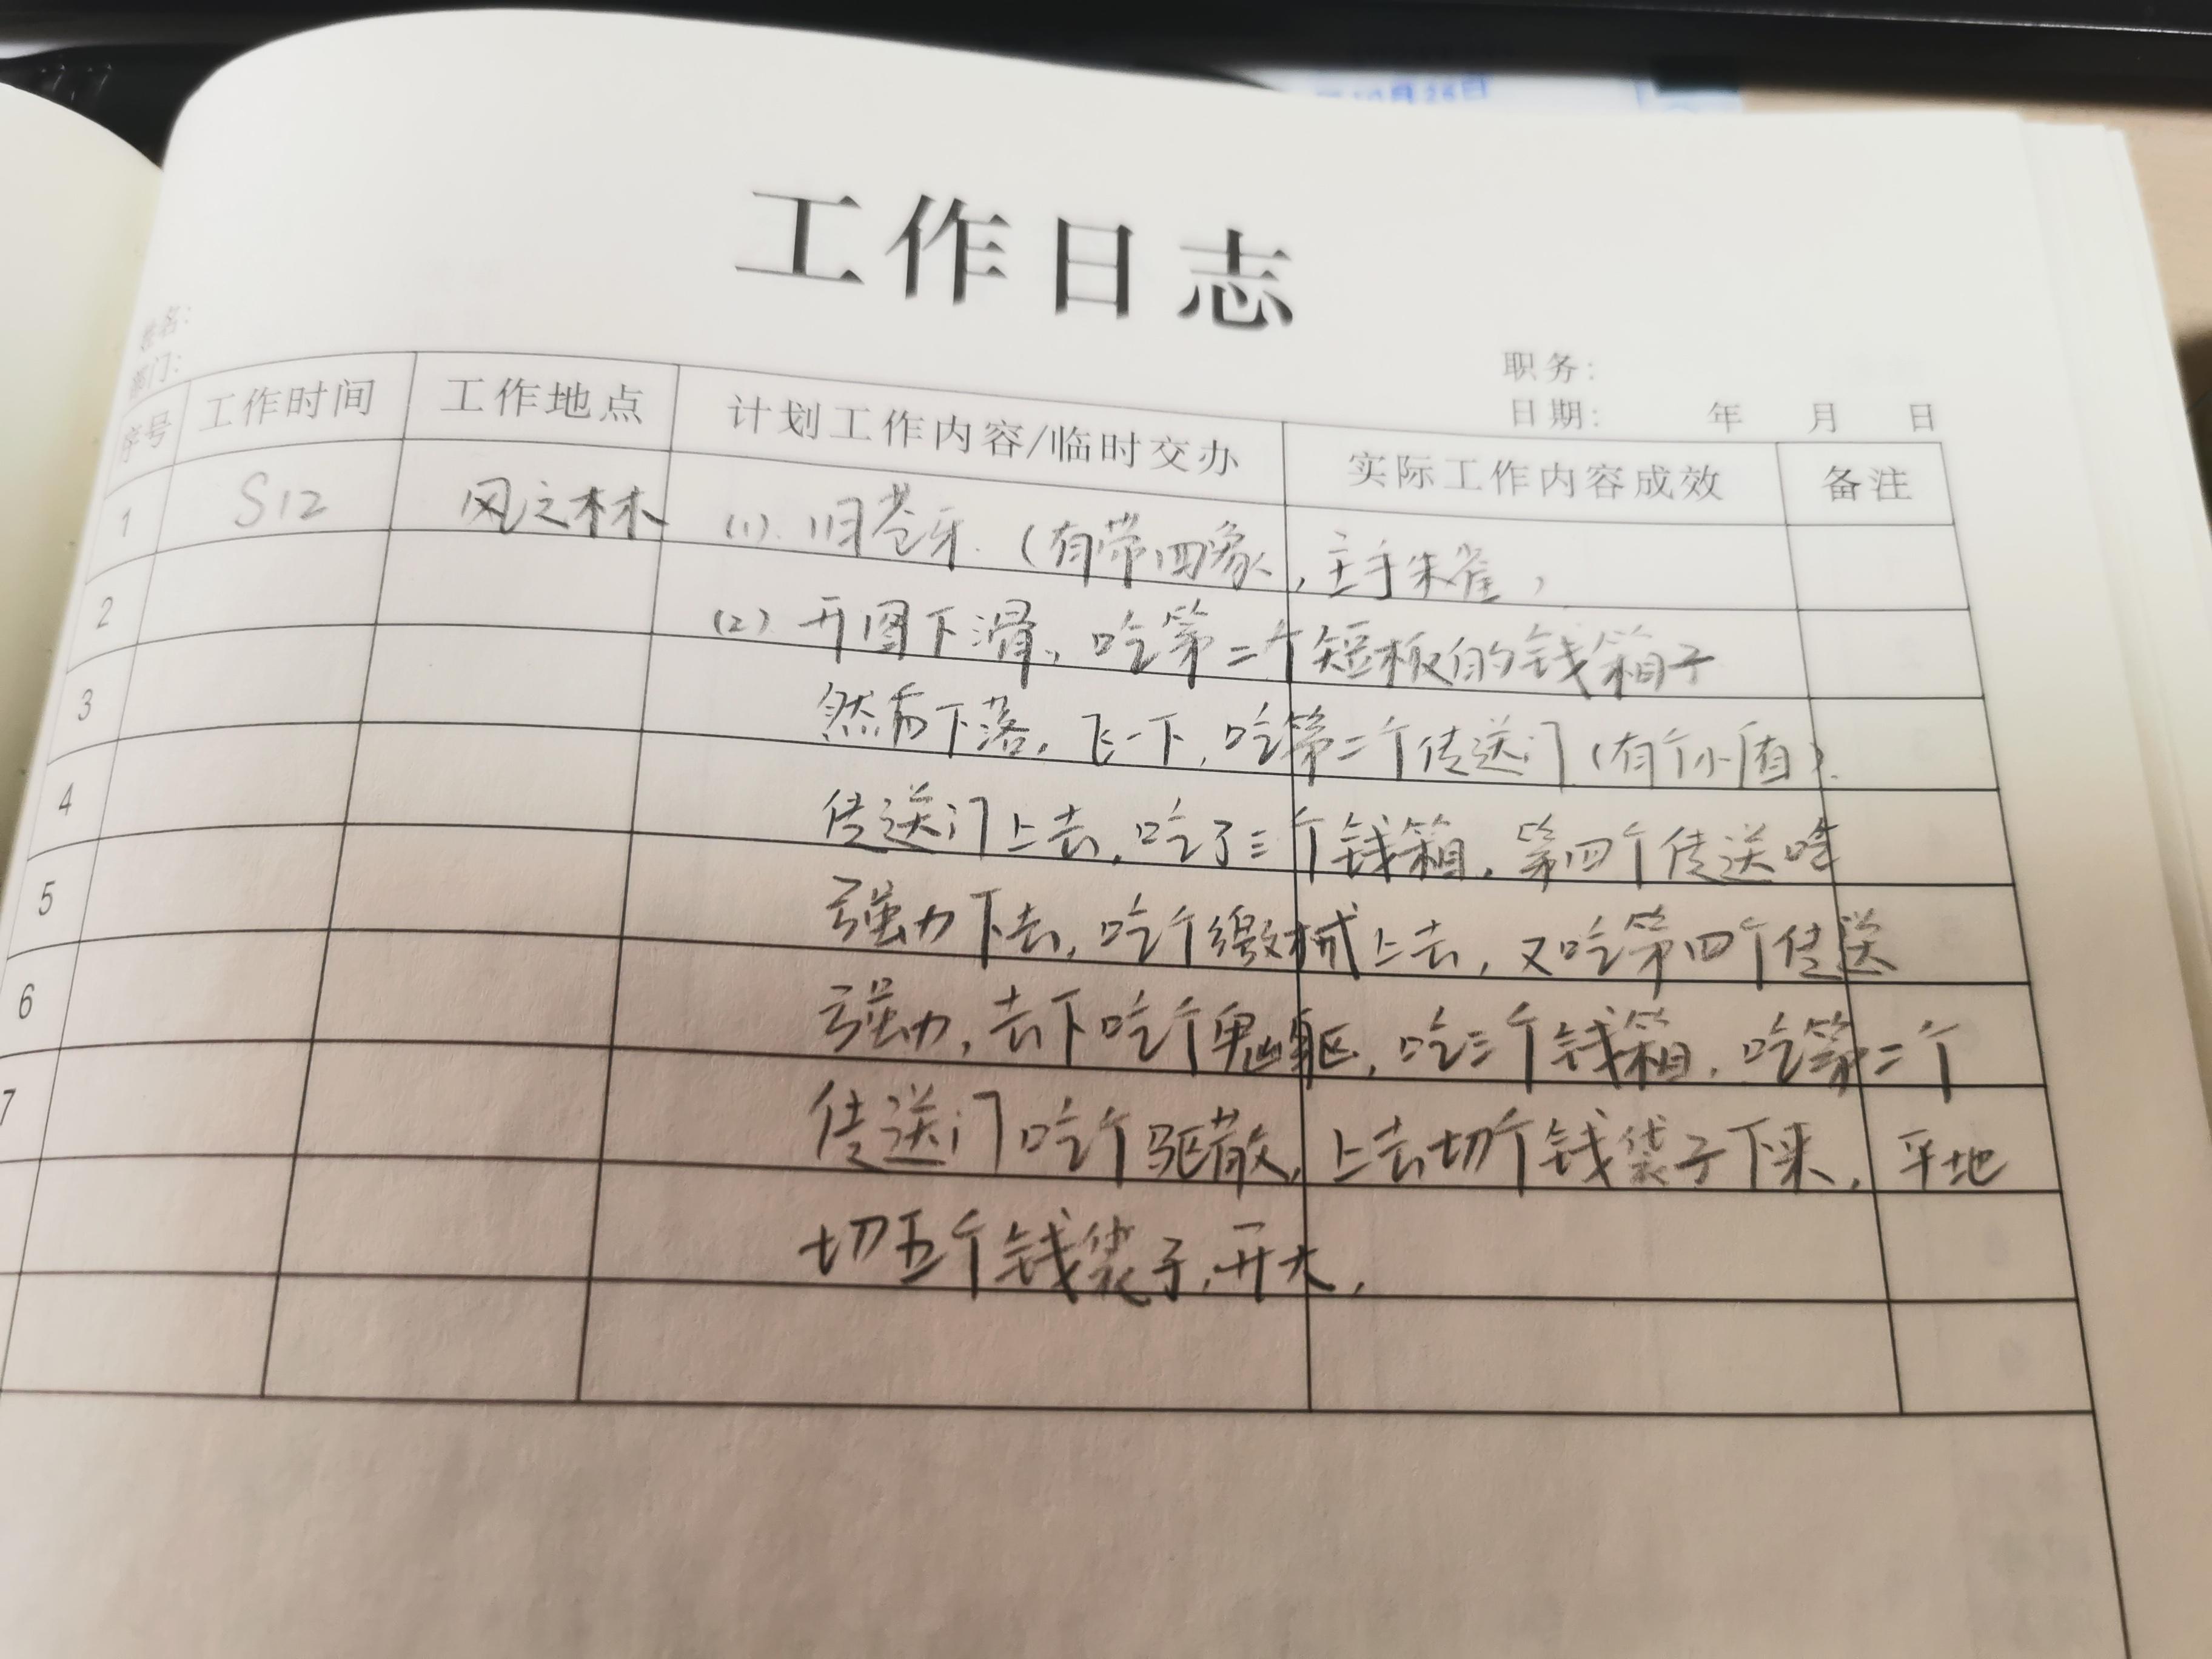 10月26日
工作日志
姓名：
部门：
职务：
日期： 年 月 日
序号 工作时间 工作地点 计划工作内容/临时交办 实际工作内容成效 备注
1 S12 风之林 (1). 旧苍牙. (有带四象, 主手朱雀,
2 (2) 开图下滑, 吃第二个短板的钱箱子
3 然后下落, 飞一下, 吃第二个传送门(有个小值).
4 传送门上去, 吃了三个钱箱, 第四个传送啥
5 强力下去, 吃个缴械上去, 又吃第四个传送
6 强力, 去下吃个鬼躯, 吃三个钱箱, 吃第二个
7 传送门吃个驱散, 上去切个钱袋子下来, 平地
切五个钱袋子, 开大,